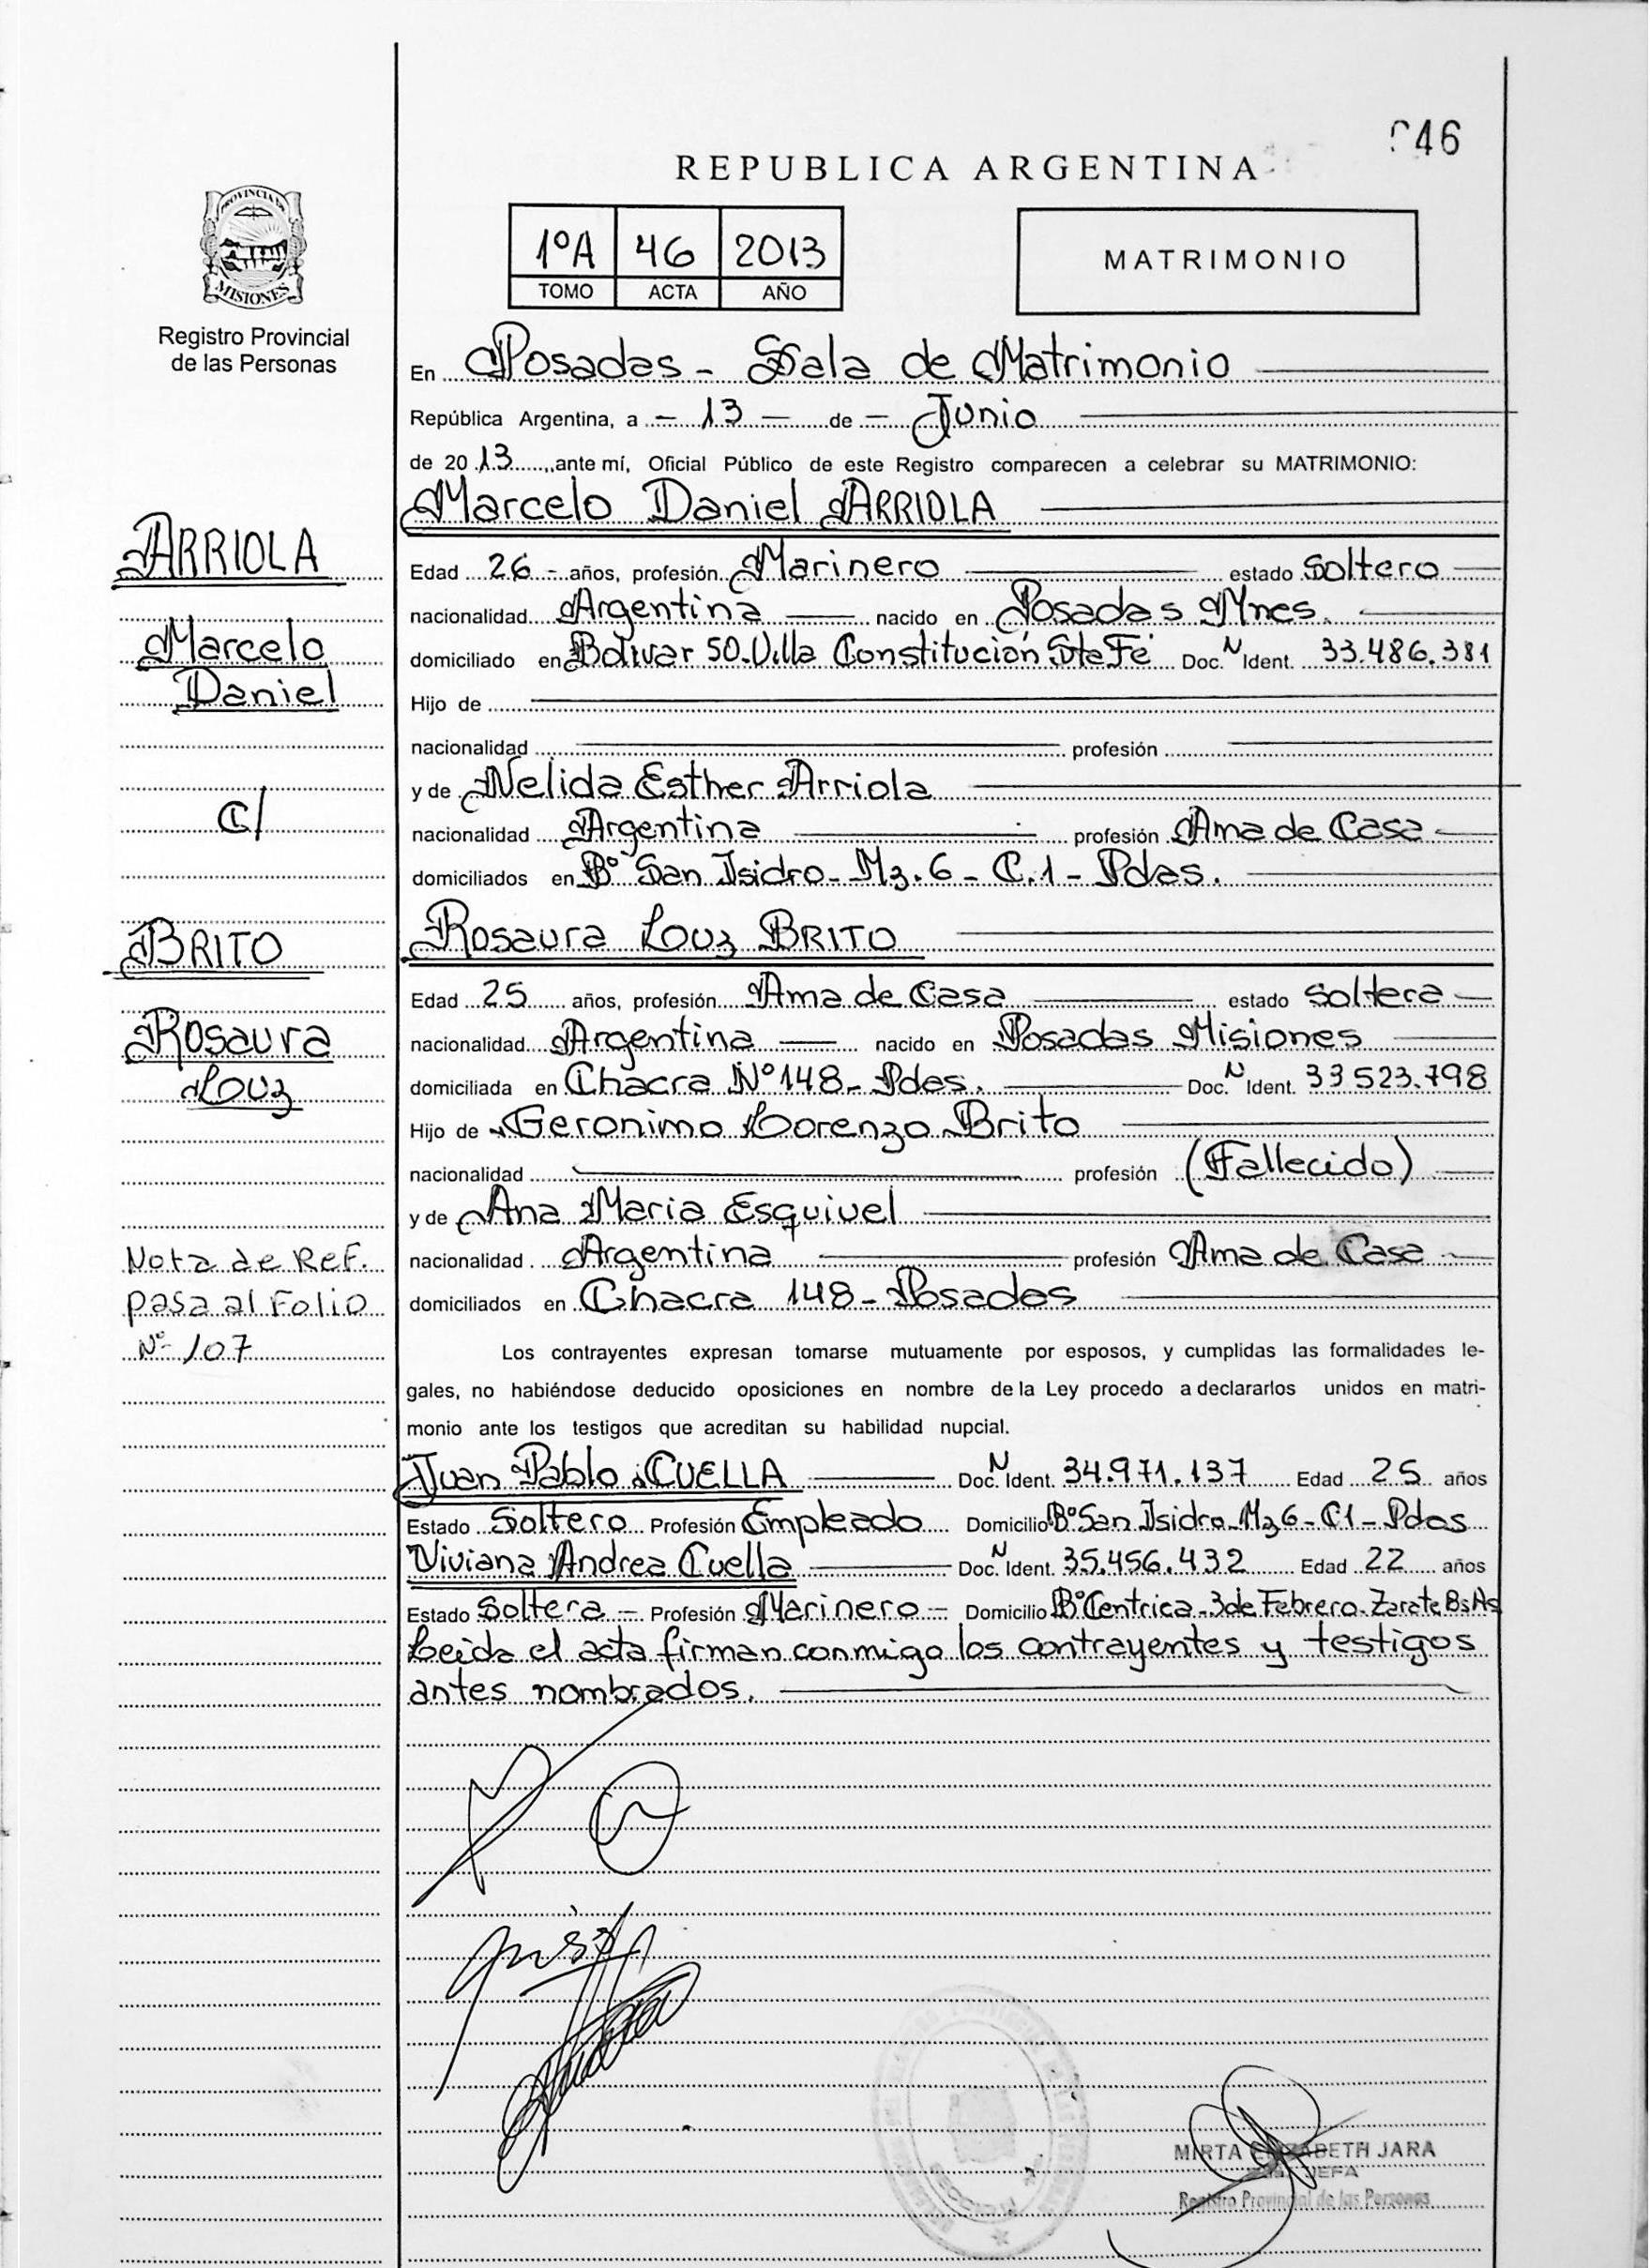 046
REPUBLICA ARGENTINA
PROVINCIA DE
MISIONES
Registro Provincial
de las Personas
1ºA 46 2013
TOMO ACTA AÑO
MATRIMONIO
En Posadas - Sala de Matrimonio
República Argentina, a - 13 - de - Junio
de 20 13, ante mí, Oficial Público de este Registro comparecen a celebrar su MATRIMONIO:
Marcelo Daniel ARRIOLA
ARRIOLA
Marcelo
Daniel
C/
BRITO
Rosaura
Louz
Nota de Ref.
pasa al Folio
Nº 107
Edad 26 - años, profesión Marinero estado Soltero
nacionalidad Argentina nacido en Posadas Mnes.
domiciliado en Bolivar 50. Villa Constitución Sta Fé Doc. N Ident. 33.486.381
Hijo de
nacionalidad profesión
y de Nelida Esther Arriola
nacionalidad Argentina profesión Ama de Casa
domiciliados en Bº San Isidro - Mz. 6 - C. 1 - Pdas.
Rosaura Louz BRITO
Edad 25 años, profesión Ama de Casa estado Soltera
nacionalidad Argentina nacido en Posadas Misiones
domiciliada en Chacra Nº 148 - Pdas. Doc. N Ident. 33.523.798
Hijo de Geronimo Lorenzo Brito
nacionalidad profesión (Fallecido)
y de Ana Maria Esquivel
nacionalidad Argentina profesión Ama de Casa
domiciliados en Chacra 148 - Posadas
Los contrayentes expresan tomarse mutuamente por esposos, y cumplidas las formalidades le-
gales, no habiéndose deducido oposiciones en nombre de la Ley procedo a declararlos unidos en matri-
monio ante los testigos que acreditan su habilidad nupcial.
Juan Pablo CUELLA Doc. N Ident. 34.971.137 Edad 25 años
Estado Soltero Profesión Empleado Domicilio Bº San Isidro - Mz 6 - C1 - Pdas
Viviana Andrea Cuella Doc. N Ident. 35.456.432 Edad 22 años
Estado Soltera - Profesión Marinero - Domicilio Bº Centrica - 3 de Febrero - Zarate Bs As
Leida el acta firman conmigo los contrayentes y testigos
antes nombrados.
MIRTA ELIZABETH JARA
JEFA
Registro Provincial de las Personas